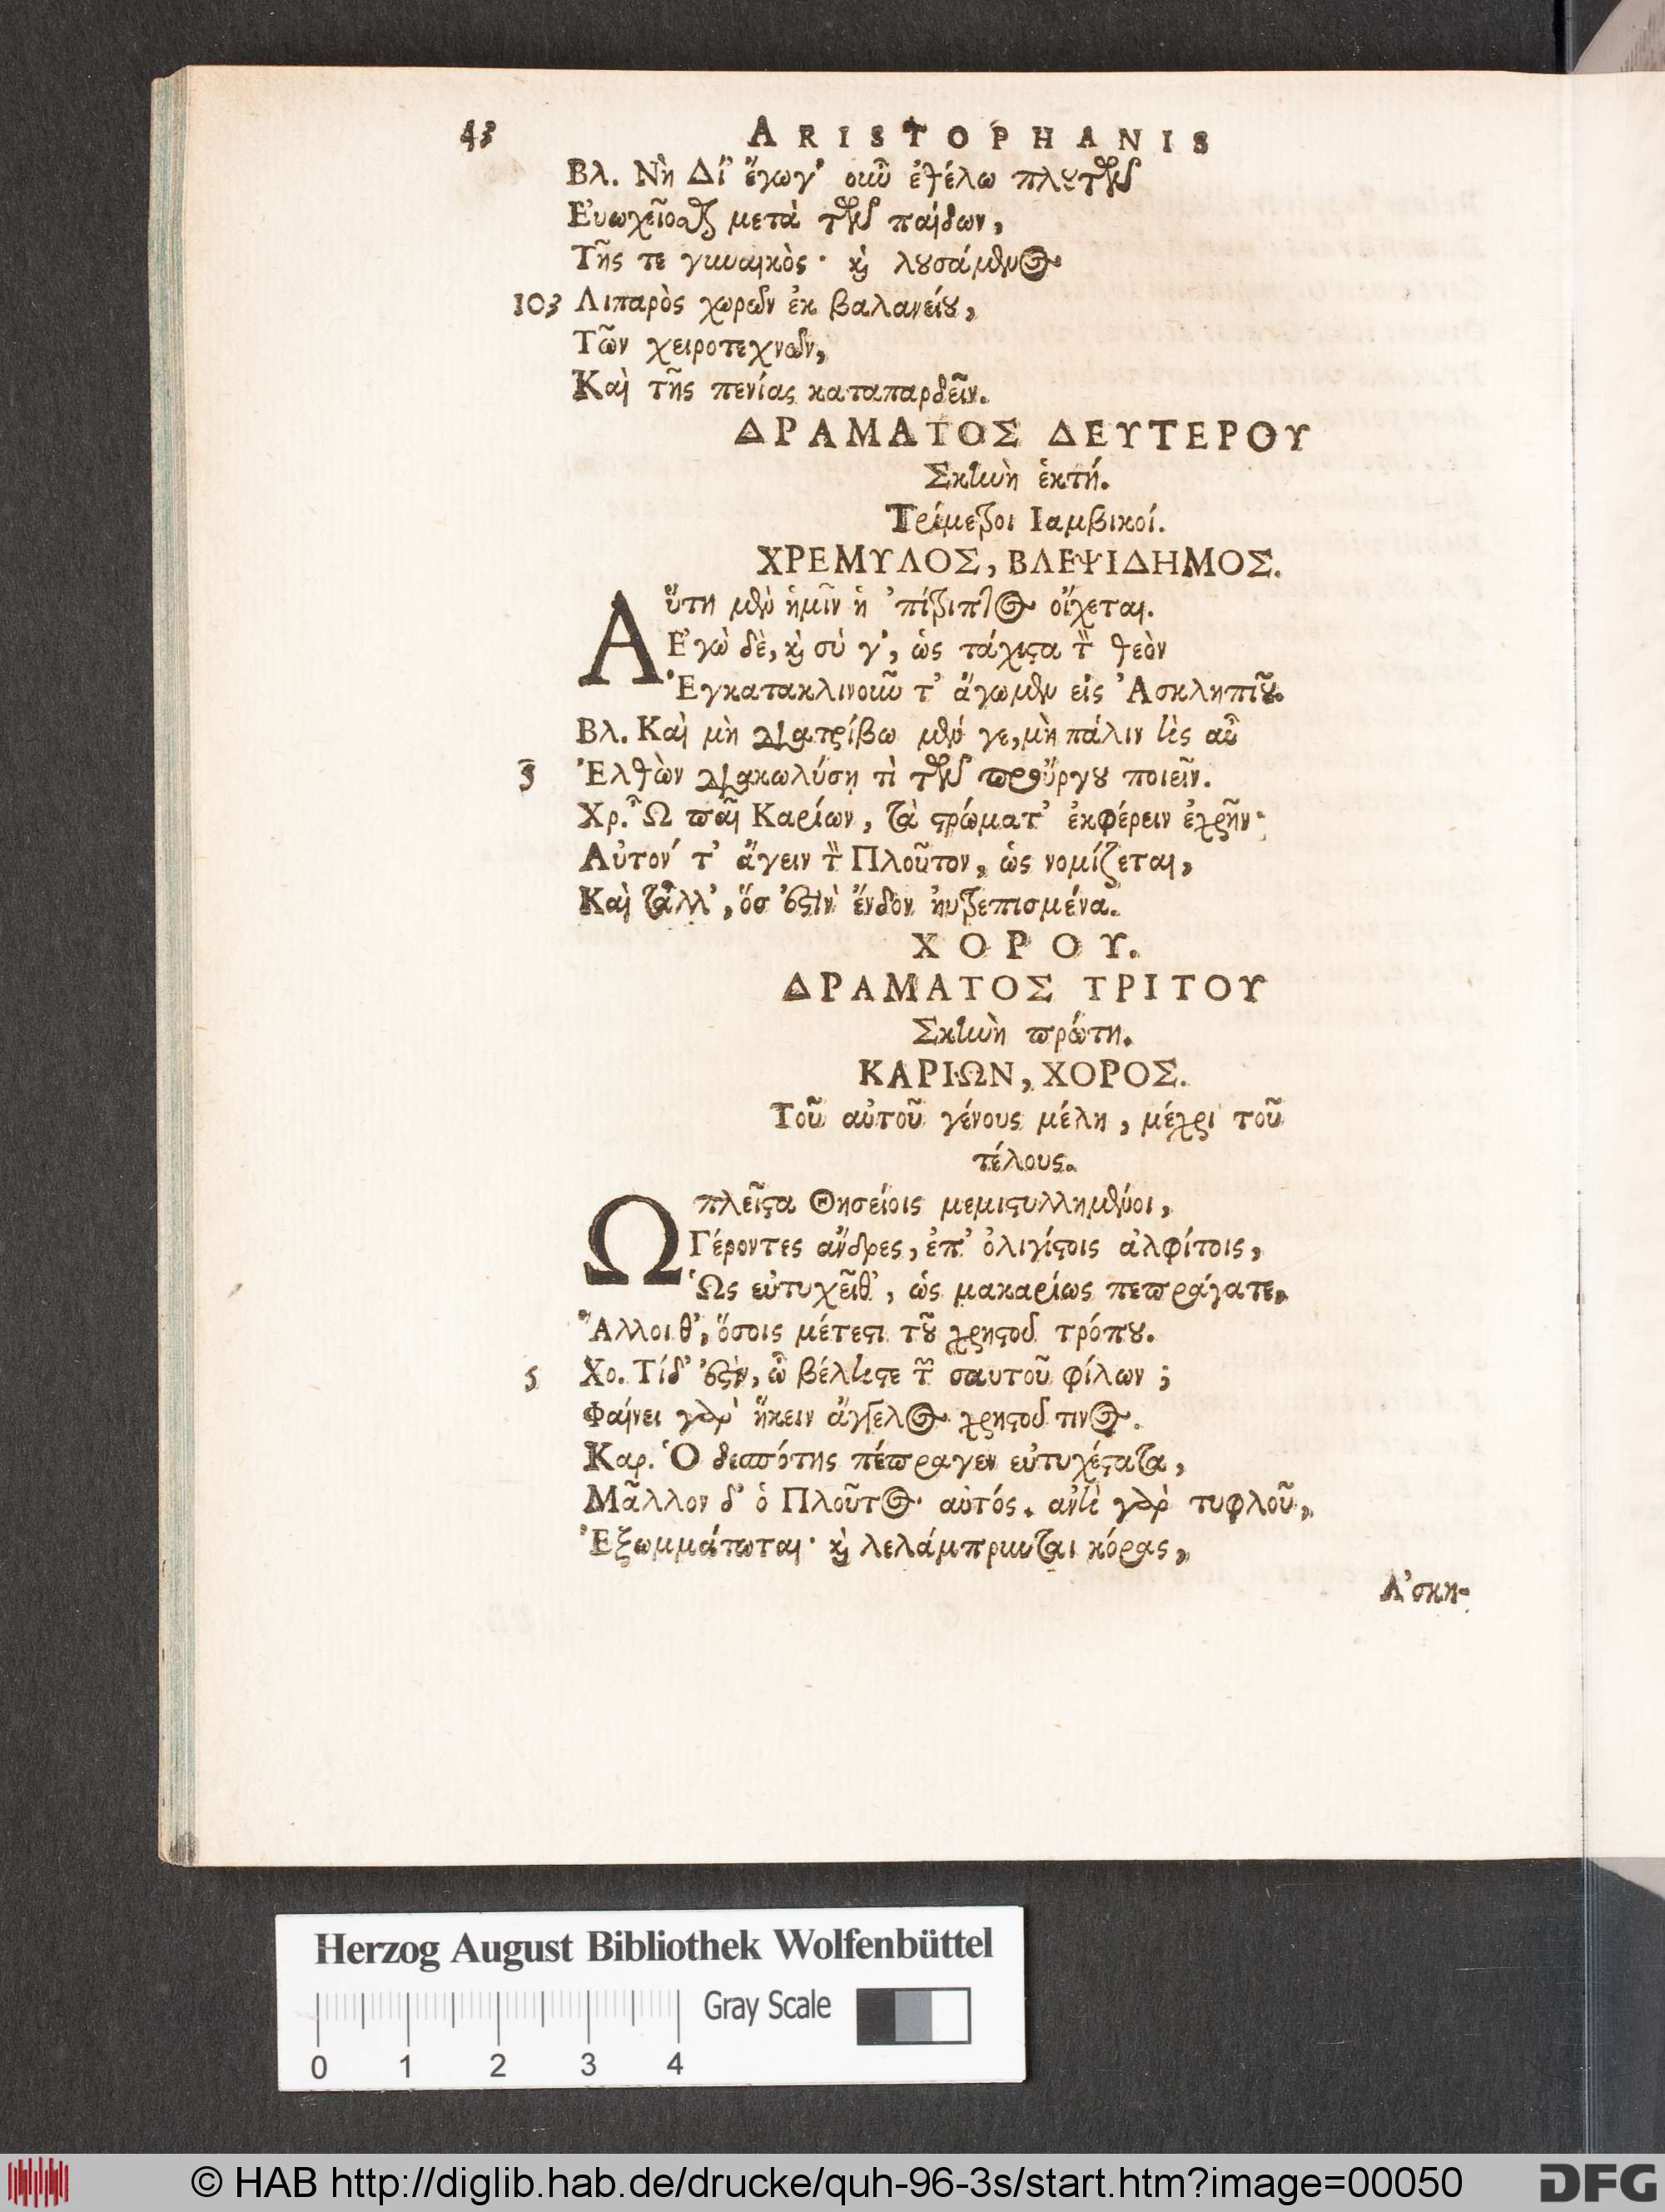 43 ARISTOPHANIS
Βλ. Νὴ Δί' ἔγωγ' οὖν ἐθέλω πλȣτῶν
Εὐωχεῖσθαι μετὰ τῶν παίδων,
Τῆς τε γυναικὸς· ϗ λουσάμενος
103 Λιπαρὸς χωρῶν ἐκ βαλανείȣ,
Τῶν χειροτεχνῶν,
Καὶ τῆς πενίας καταπαρδεῖν.
ΔΡΑΜΑΤΟΣ ΔΕΥΤΕΡΟΥ
Σκηνὴ ἑκτή.
Τρίμετροι Ιαμβικοί.
ΧΡΕΜΥΛΟΣ, ΒΛΕΨΙΔΗΜΟΣ.
Αὕτη μὲν ἡμῖν ἡ 'πίτριπτος οἴχεται.
Ἐγὼ δὲ, ϗ σύ γ', ὡς τάχιστα τὸν θεὸν
Ἐγκατακλινοῦντ' ἄγωμεν εἰς Ἀσκληπιȣ͂.
Βλ. Καὶ μὴ διατρίβωμέν γε, μὴ πάλιν τὶς αὖ
5 Ἐλθὼν διακωλύσῃ τὶ τῶν προὔργȣ ποιεῖν.
Χρ. Ὦ παῖ Καρίων, τὰ στρώματ' ἐκφέρειν ἐχρῆν·
Αὐτόν τ' ἄγειν τὸν Πλοῦτον, ὡς νομίζεται,
Καὶ τἆλλ', ὅσ' ἐστὶν ἔνδον ηὐτρεπισμένα.
ΧΟΡΟΥ.
ΔΡΑΜΑΤΟΣ ΤΡΙΤΟΥ
Σκηνὴ πρώτη.
ΚΑΡΙΩΝ, ΧΟΡΟΣ.
Τοῦ αὐτοῦ γένους μέλη, μέχρι τοῦ
τέλους.
Ὦ πλεῖστα Θησείοις μεμιστυλλημένοι,
Γέροντες ἄνδρες, ἐπ' ὀλιγίστοις ἀλφίτοις,
Ὡς εὐτυχεῖθ', ὡς μακαρίως πεπράγατε,
Ἄλλοι θ', ὅσοις μέτεστι τȣ͂ χρηστοῦ τρόπȣ.
5 Χο. Τί δ' ἐστὶν, ὦ βέλτιστε τῶν σαυτοῦ φίλων;
Φαίνει γὰρ ἥκειν ἄγγελος χρηστοῦ τινος.
Καρ. Ὁ δεσπότης πέπραγεν εὐτυχέστατα,
Μᾶλλον δ' ὁ Πλοῦτος αὐτός. ἀντὶ γὰρ τυφλοῦ,
Ἐξωμμάτωται· ϗ λελάμπρυνται κόρας,
Ἀσκη-
Herzog August Bibliothek Wolfenbüttel
Gray Scale
0 1 2 3 4
© HAB http://diglib.hab.de/drucke/quh-96-3s/start.htm?image=00050
DFG